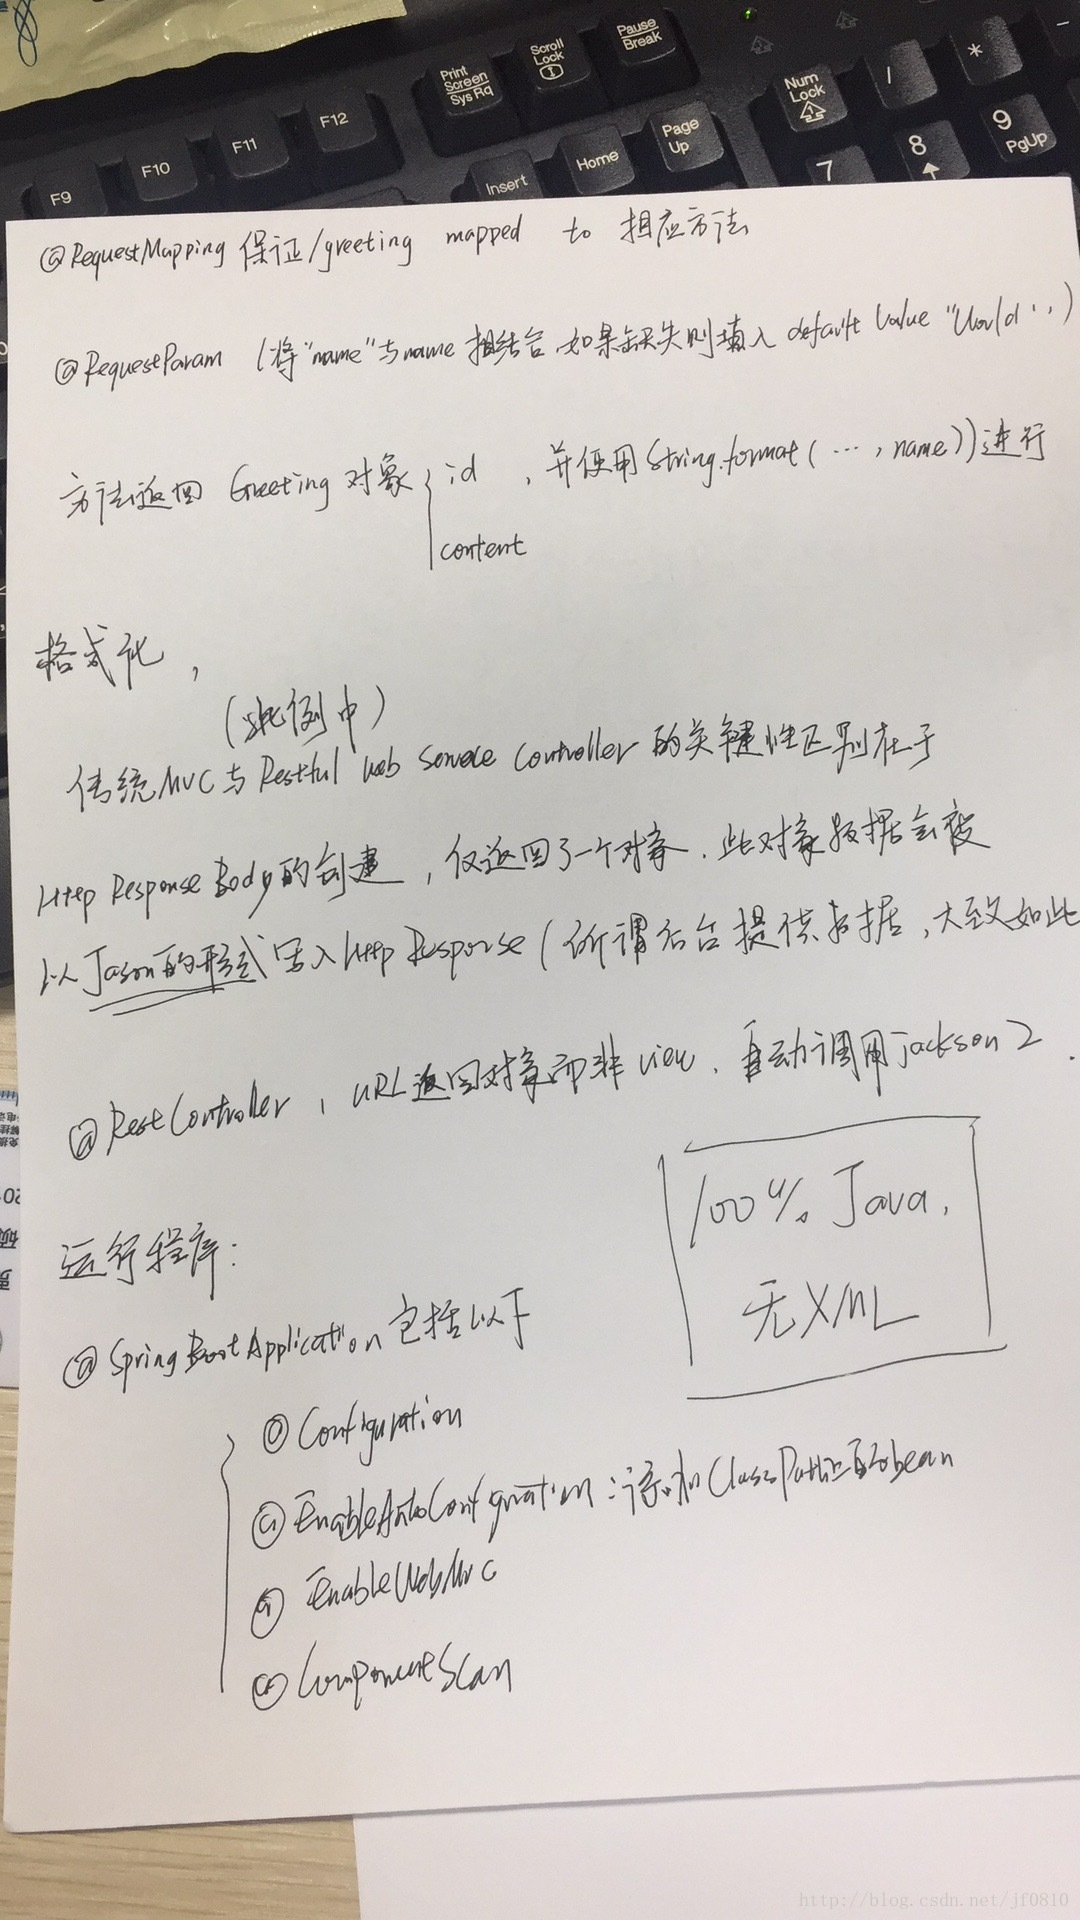 F9
F10
F11
F12
Print
Screen
Sys Rq
Scroll
Lock
Pause
Break
Insert
Home
Page
Up
Num
Lock
/
*
7
8
9
PgUp
@RequestMapping 保证/greeting mapped to 相应方法
@RequestParam (将"name"与name相结合,如果缺失则填入 default value "World")
方法返回 Greeting 对象{ id ,并使用String.format( …, name))进行
content
格式化,
(此例中)
传统MVC与Restful web service controller的关键性区别在于
Http Response Body的创建,仅返回了一个对象.此对象数据会被
以Jason的形式写入Http Response(所谓后台提供数据,大致如此
@RestController, URL返回对象而非view,自动调用jackson 2.
100% Java,
无XML
运行程序:
@SpringBootApplication包括以下
@Configuration
@EnableAutoConfiguration:添加ClassPath上的bean
@EnableWebMvc
@ComponentScan
http://blog.csdn.net/jf0810